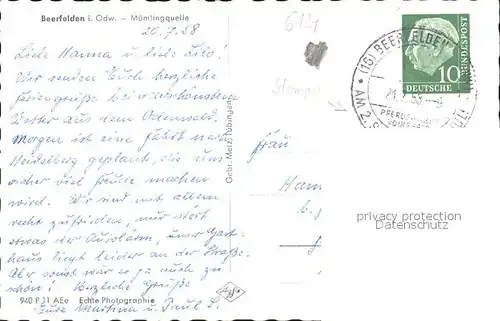 Beerfelden i. Odw. – Mümlingquelle
20.7.58
Liebe Hanna u. liebe Lilo!
Wir senden Euch herzliche
Feriengrüße bei schönstem
Wetter aus dem Odenwald.
Morgen ist eine Fahrt nach
Heidelberg geplant, die uns
sicher viel Freude machen
wird. Wir sind mit allem
recht zufrieden, nur stört
etwas der Autolärm, unser Gast-
haus liegt leider an der Straße.
Aber sonst wär es ja auch zu
schön! Herzliche Grüße
Eure Martina u. Paul L.
940 P 11 AEe Echte Photographie
Gebr. Metz, Tübingen
6121
Stempel
Frau
Han
b.
(16) BEERFELDEN
PFERDE
DEUTSCHE
BUNDESPOST
10
privacy protection
Datenschutz